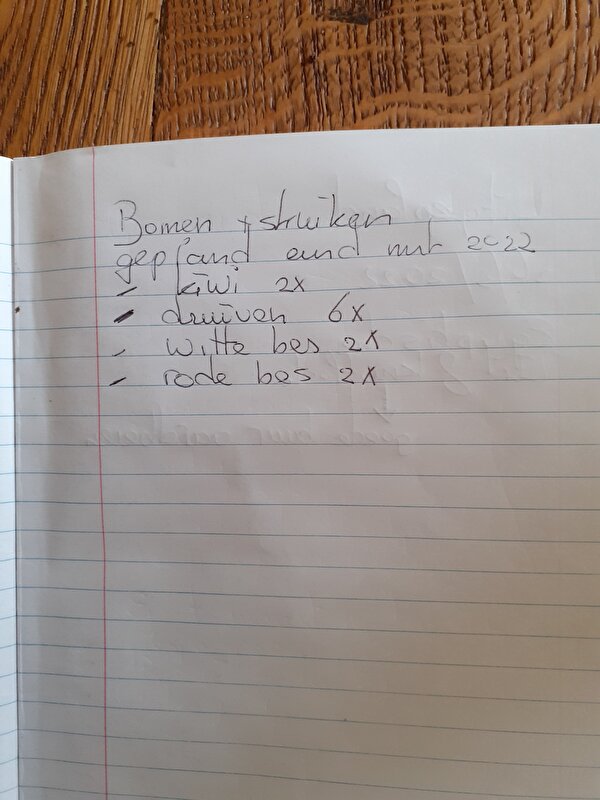 Bomen + struiken
gepland eind mrt 2022
- kiwi 2x
- druiven 6x
- witte bes 2x
- rode bes 2x